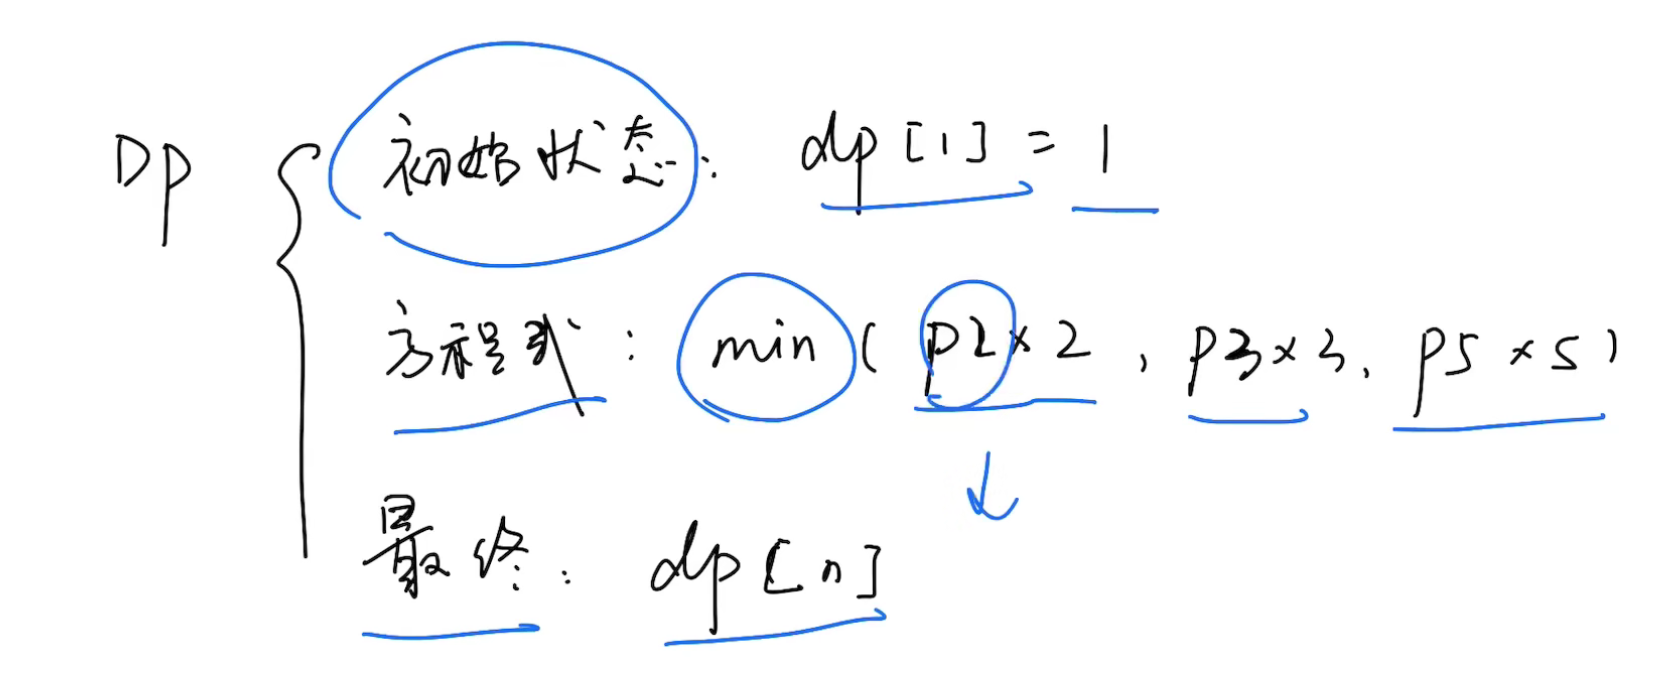 DP
初始状态: dp[1] = 1
方程式: min( p2×2, p3×3, p5×5)
最终: dp[n]